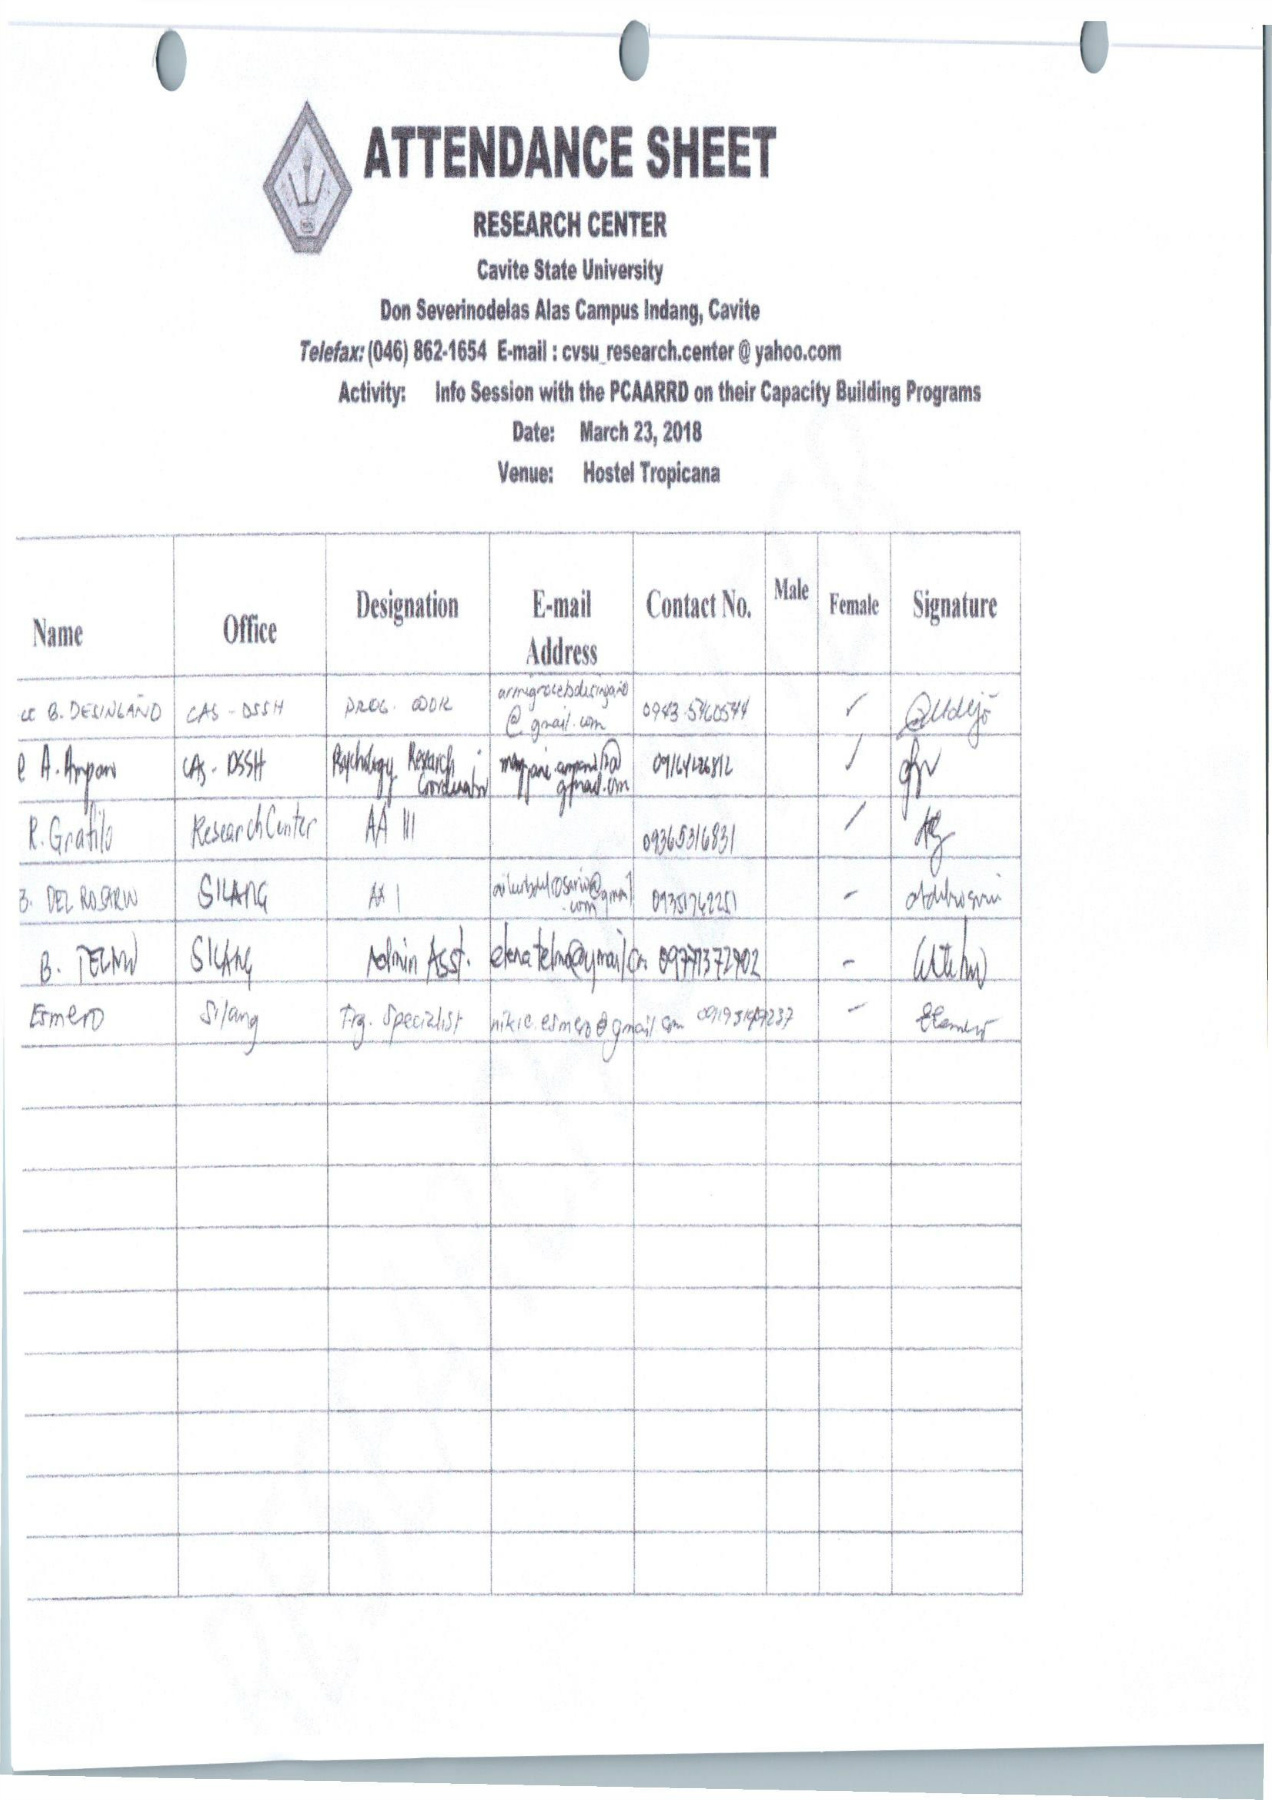 ATTENDANCE SHEET
RESEARCH CENTER
Cavite State University
Don Severinodelas Alas Campus Indang, Cavite
Telefax: (046) 862-1654 E-mail : cvsu_research.center @ yahoo.com
Activity: Info Session with the PCAARRD on their Capacity Building Programs
Date: March 23, 2018
Venue: Hostel Tropicana
Name Office Designation E-mail Address Contact No. Male Female Signature
B. DESINGAÑO CAS - DSSH PROG. COOR
@ gmail.com
A. Ampan CAS - DSSH Psychology Research Coordinator
gmail.com
R. Gratilo Research Center AA III 09365316831
B. DEL ROSARIO SILANG AA I 09351762251
B. TELMO SILANG Admin Asst.
Esmero Silang Trg. Specialist nikie.esmero@gmail.com